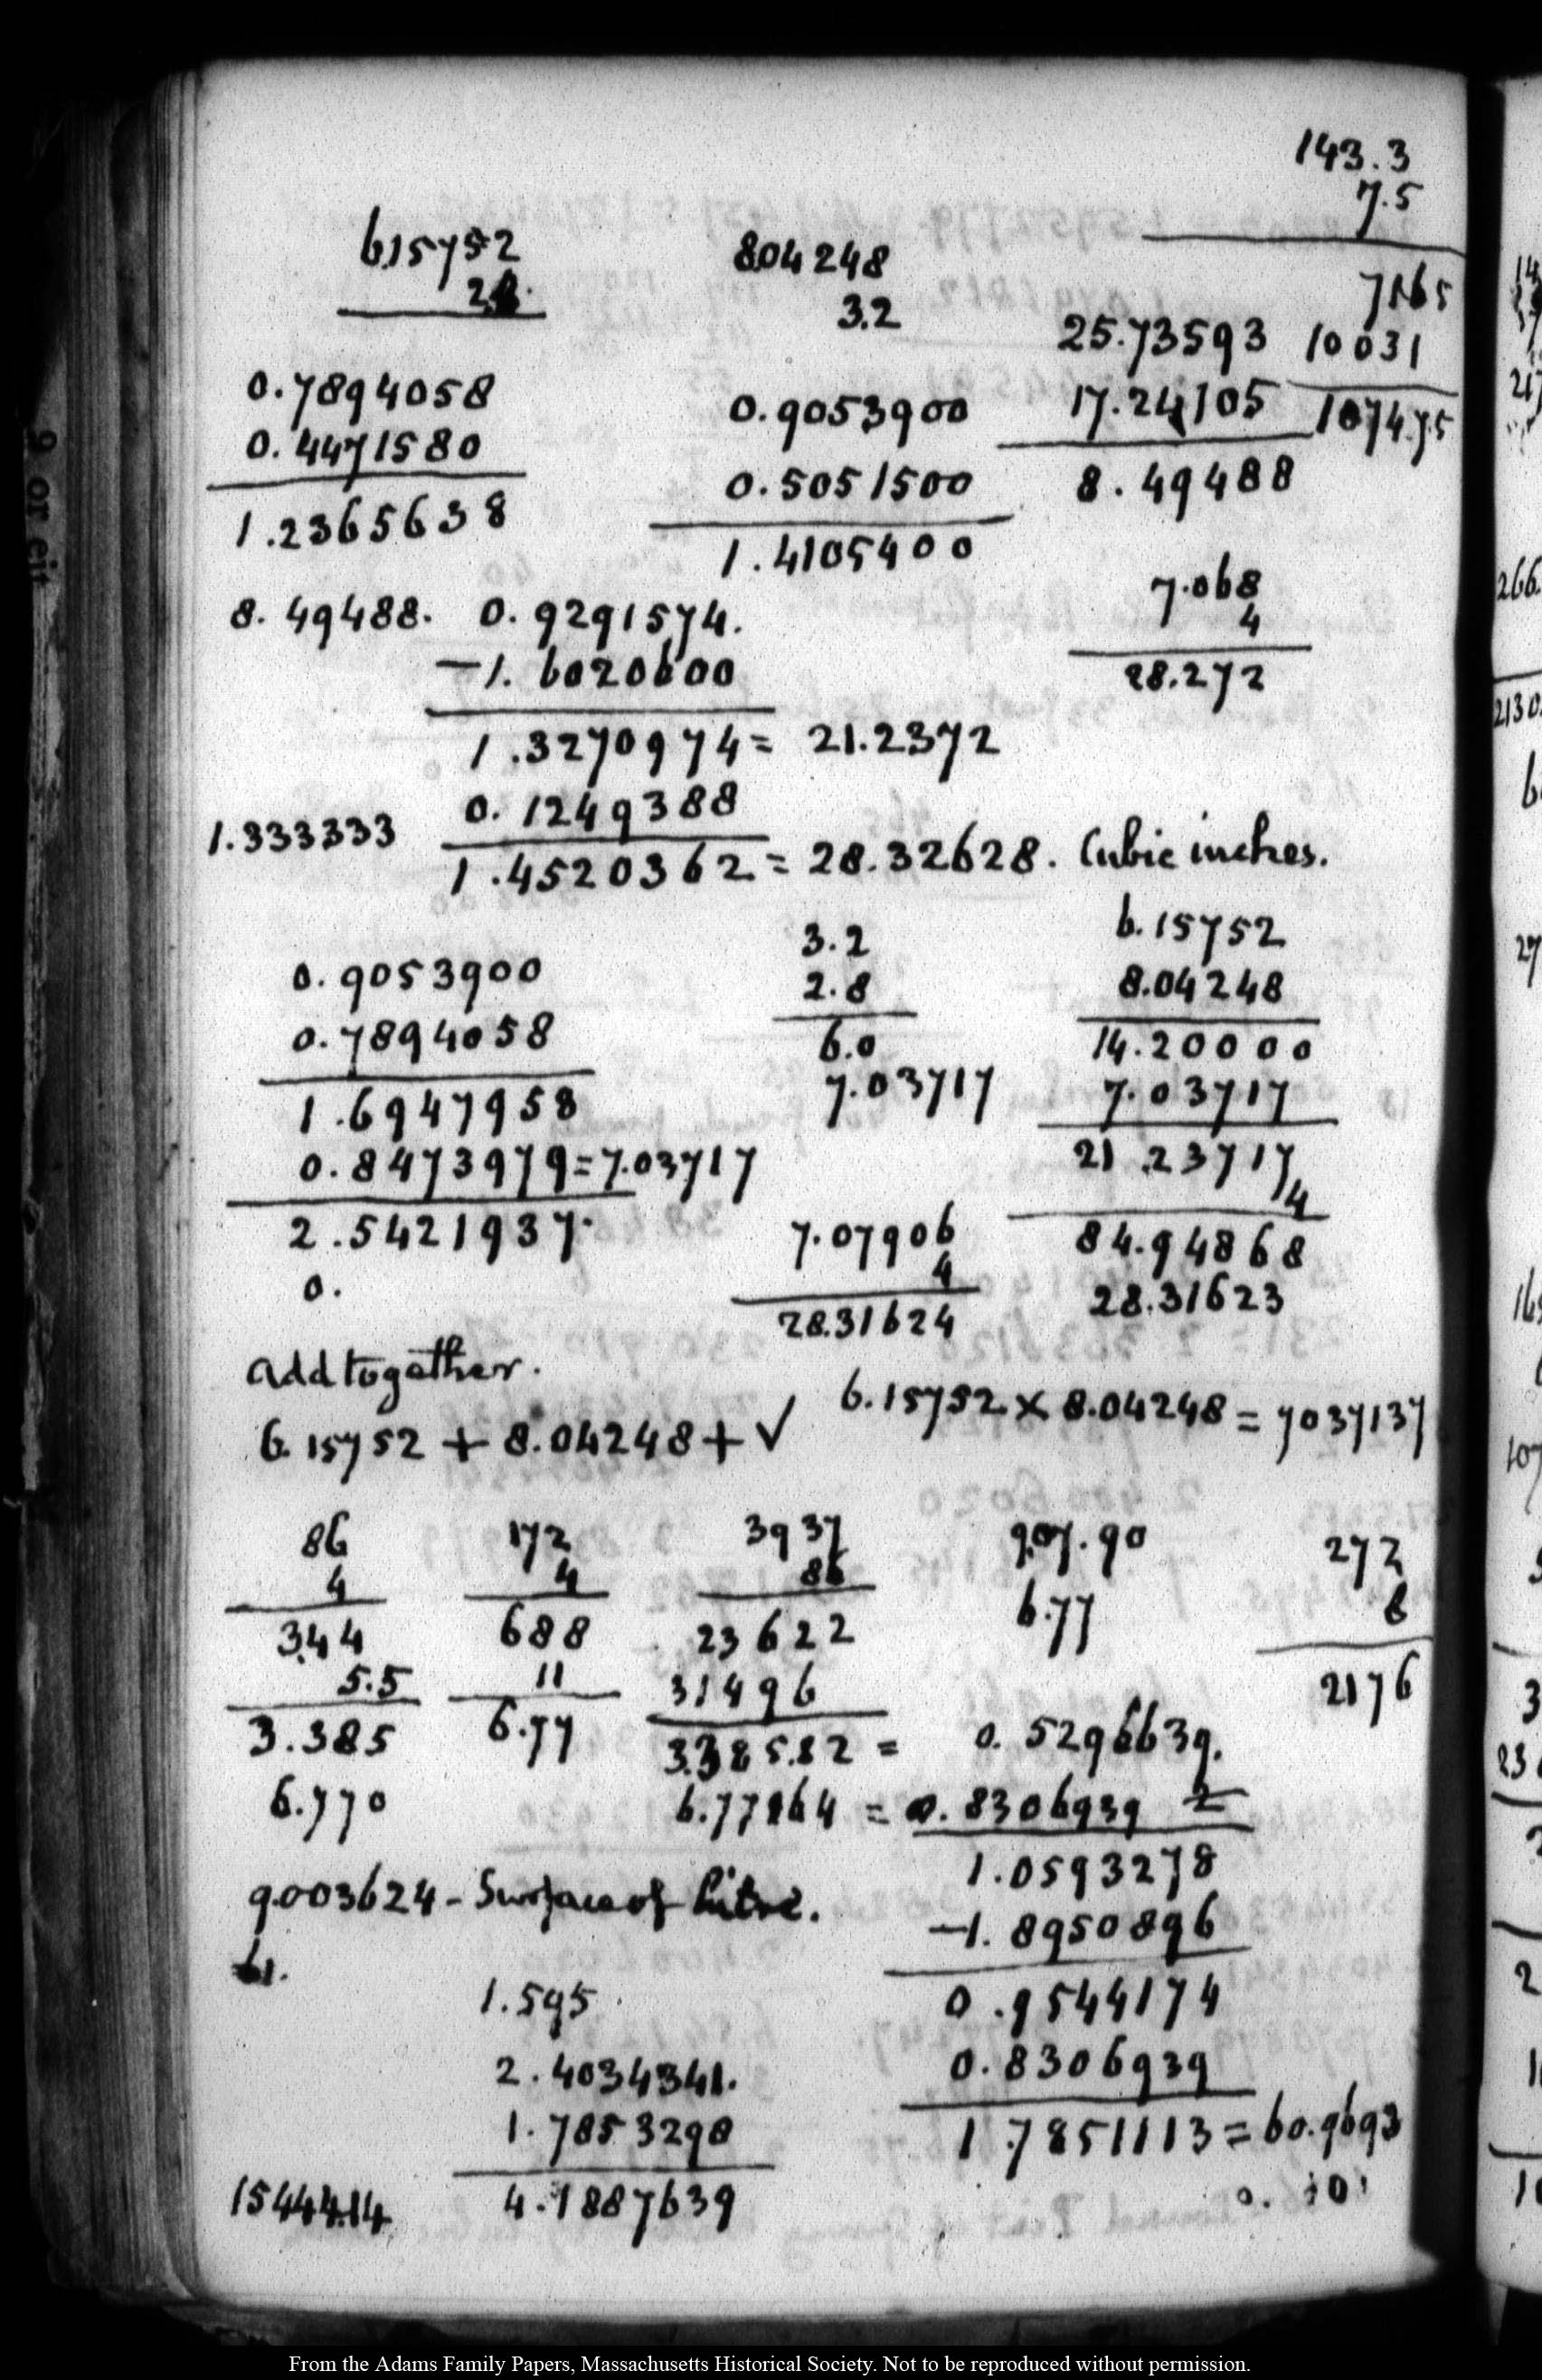 143.3
7.5
7165
10031
1074.75
6.15752
2.8
0.7894058
0.4471580
1.2365638
8.04248
3.2
0.9053900
0.5051500
1.4105400
25.73593
17.24105
8.49488
8.49488. 0.9291574.
-1.6020600
1.3270974 = 21.2372
1.333333 0.1249388
1.4520362 = 28.32628. Cubic inches.
7.068
4
28.272
0.9053900
0.7894058
1.6947958
0.8473979 = 7.03717
2.5421937.
0.
3.2
2.8
6.0
7.03717
7.07906
4
28.31624
6.15752
8.04248
14.20000
7.03717
21.23717
4
84.94868
28.31623
add together.
6.15752 + 8.04248 + √ 6.15752 × 8.04248 = 7037137
86
4
3.44
5.5
3.385
6.770
172
4
688
11
6.77
3937
86
23622
31496
3.385.82 = 0.5296639.
6.77164 = 0.8306939 2
1.0593278
-1.8950896
0.9544174
0.8306939
1.7851113 = 60.9693
907.90
6.77
272
8
2176
9.003624 - Surface of Litre.
1.595
2.4034341.
1.7853298
15444.14 4.1887639
9 or eit
From the Adams Family Papers, Massachusetts Historical Society. Not to be reproduced without permission.